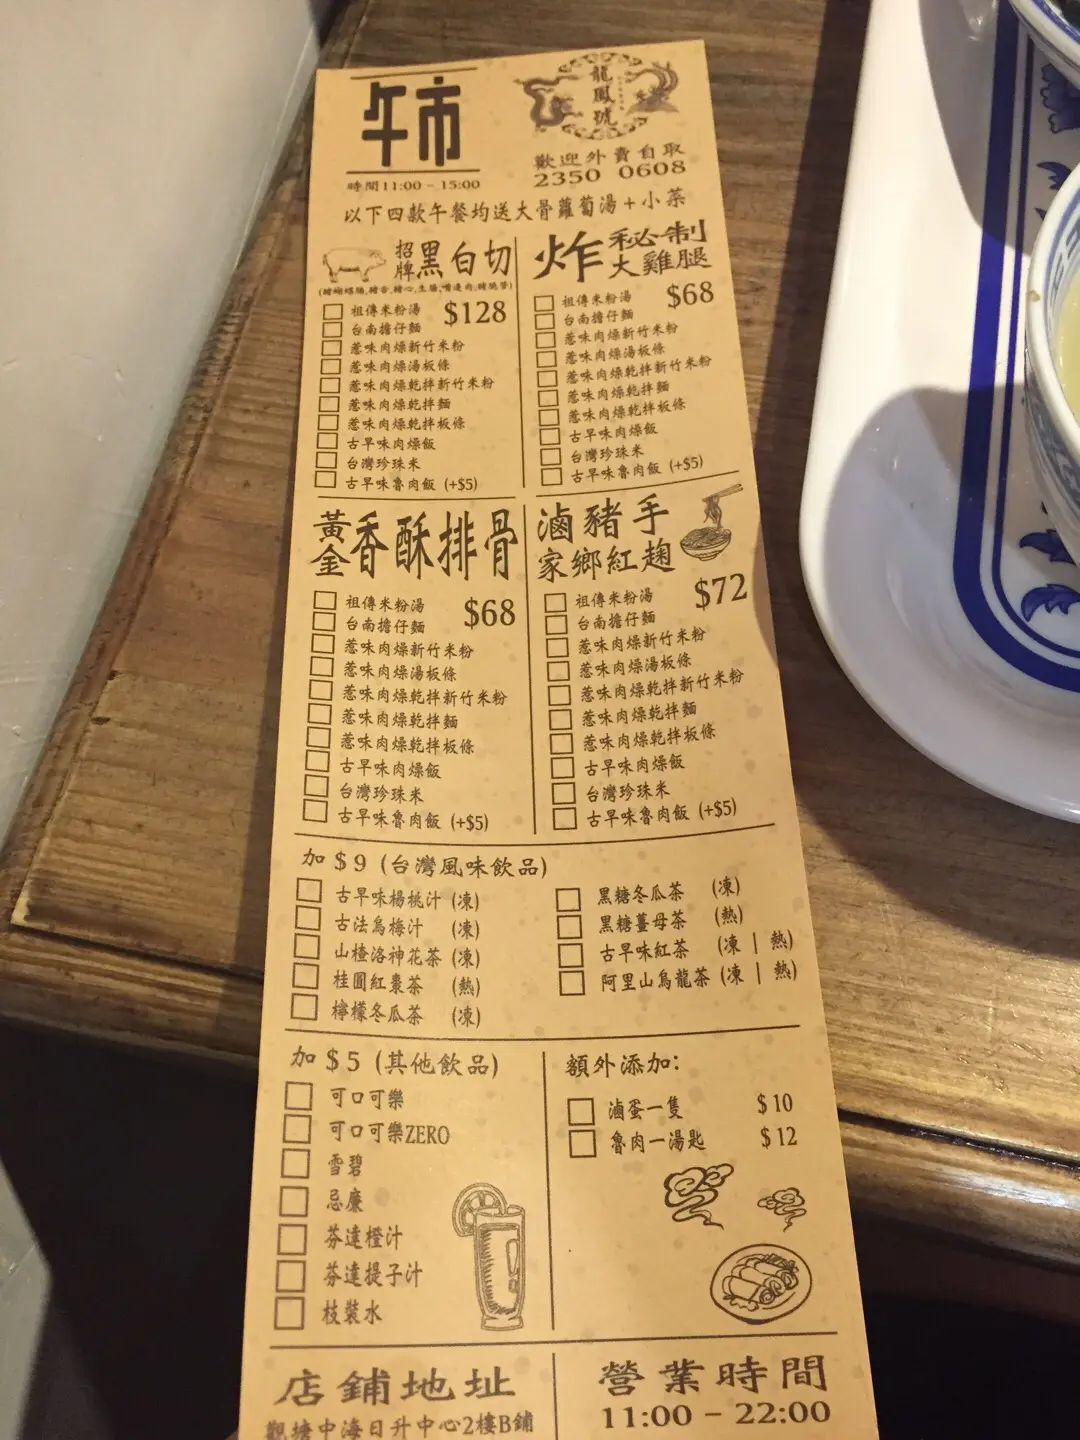 午市
龍鳳號
時間11:00 - 15:00
歡迎外賣自取
2350 0608
以下四款午餐均送大骨蘿蔔湯+小菜
招牌黑白切
$128
祖傳米粉湯
台南擔仔麵
惹味肉燥新竹米粉
惹味肉燥湯板條
惹味肉燥乾拌新竹米粉
惹味肉燥乾拌麵
惹味肉燥乾拌板條
古早味肉燥飯
台灣珍珠米
古早味魯肉飯 (+$5)
炸秘制大雞腿
$68
祖傳米粉湯
台南擔仔麵
惹味肉燥新竹米粉
惹味肉燥湯板條
惹味肉燥乾拌新竹米粉
惹味肉燥乾拌麵
惹味肉燥乾拌板條
古早味肉燥飯
台灣珍珠米
古早味魯肉飯 (+$5)
黃金香酥排骨
$68
祖傳米粉湯
台南擔仔麵
惹味肉燥新竹米粉
惹味肉燥湯板條
惹味肉燥乾拌新竹米粉
惹味肉燥乾拌麵
惹味肉燥乾拌板條
古早味肉燥飯
台灣珍珠米
古早味魯肉飯 (+$5)
滷豬手
家鄉紅麴
$72
祖傳米粉湯
台南擔仔麵
惹味肉燥新竹米粉
惹味肉燥湯板條
惹味肉燥乾拌新竹米粉
惹味肉燥乾拌麵
惹味肉燥乾拌板條
古早味肉燥飯
台灣珍珠米
古早味魯肉飯 (+$5)
加 $9 (台灣風味飲品)
古早味楊桃汁 (凍)
古法烏梅汁 (凍)
山楂洛神花茶 (凍)
桂圓紅棗茶 (熱)
檸檬冬瓜茶 (凍)
黑糖冬瓜茶 (凍)
黑糖薑母茶 (熱)
古早味紅茶 (凍 | 熱)
阿里山烏龍茶 (凍 | 熱)
加 $5 (其他飲品)
可口可樂
可口可樂ZERO
雪碧
忌廉
芬達橙汁
芬達提子汁
枝裝水
額外添加:
滷蛋一隻 $10
魯肉一湯匙 $12
店鋪地址
觀塘中海日升中心2樓B鋪
營業時間
11:00 - 22:00